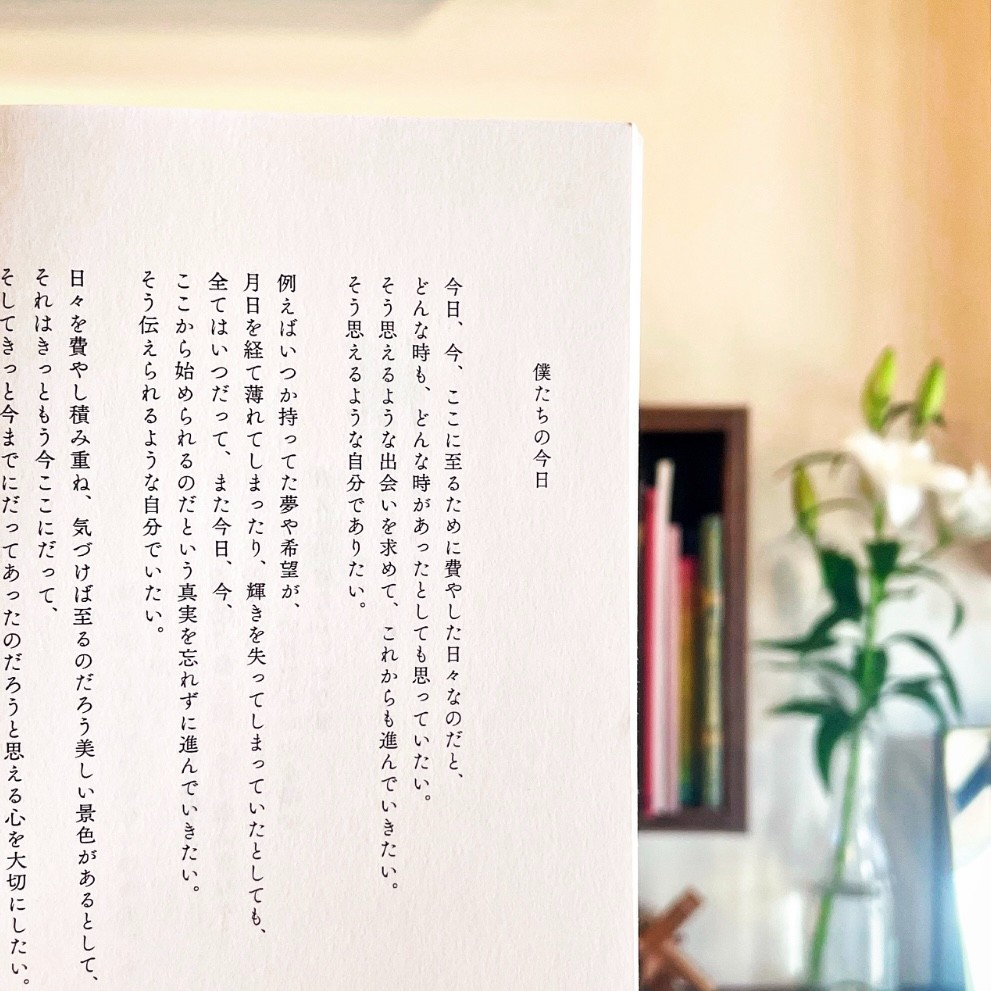 僕たちの今日
今日、今、ここに至るために費やした日々なのだと、
どんな時も、どんな時があったとしても思っていたい。
そう思えるような出会いを求めて、これからも進んでいきたい。
そう思えるような自分でありたい。
例えばいつか持ってた夢や希望が、
月日を経て薄れてしまったり、輝きを失ってしまっていたとしても、
全てはいつだって、また今日、今、
ここから始められるのだという真実を忘れずに進んでいきたい。
そう伝えられるような自分でいたい。
日々を費やし積み重ね、気づけば至るのだろう美しい景色があるとして、
それはきっともう今ここにだって、
そしてきっと今までにだってあったのだろうと思える心を大切にしたい。